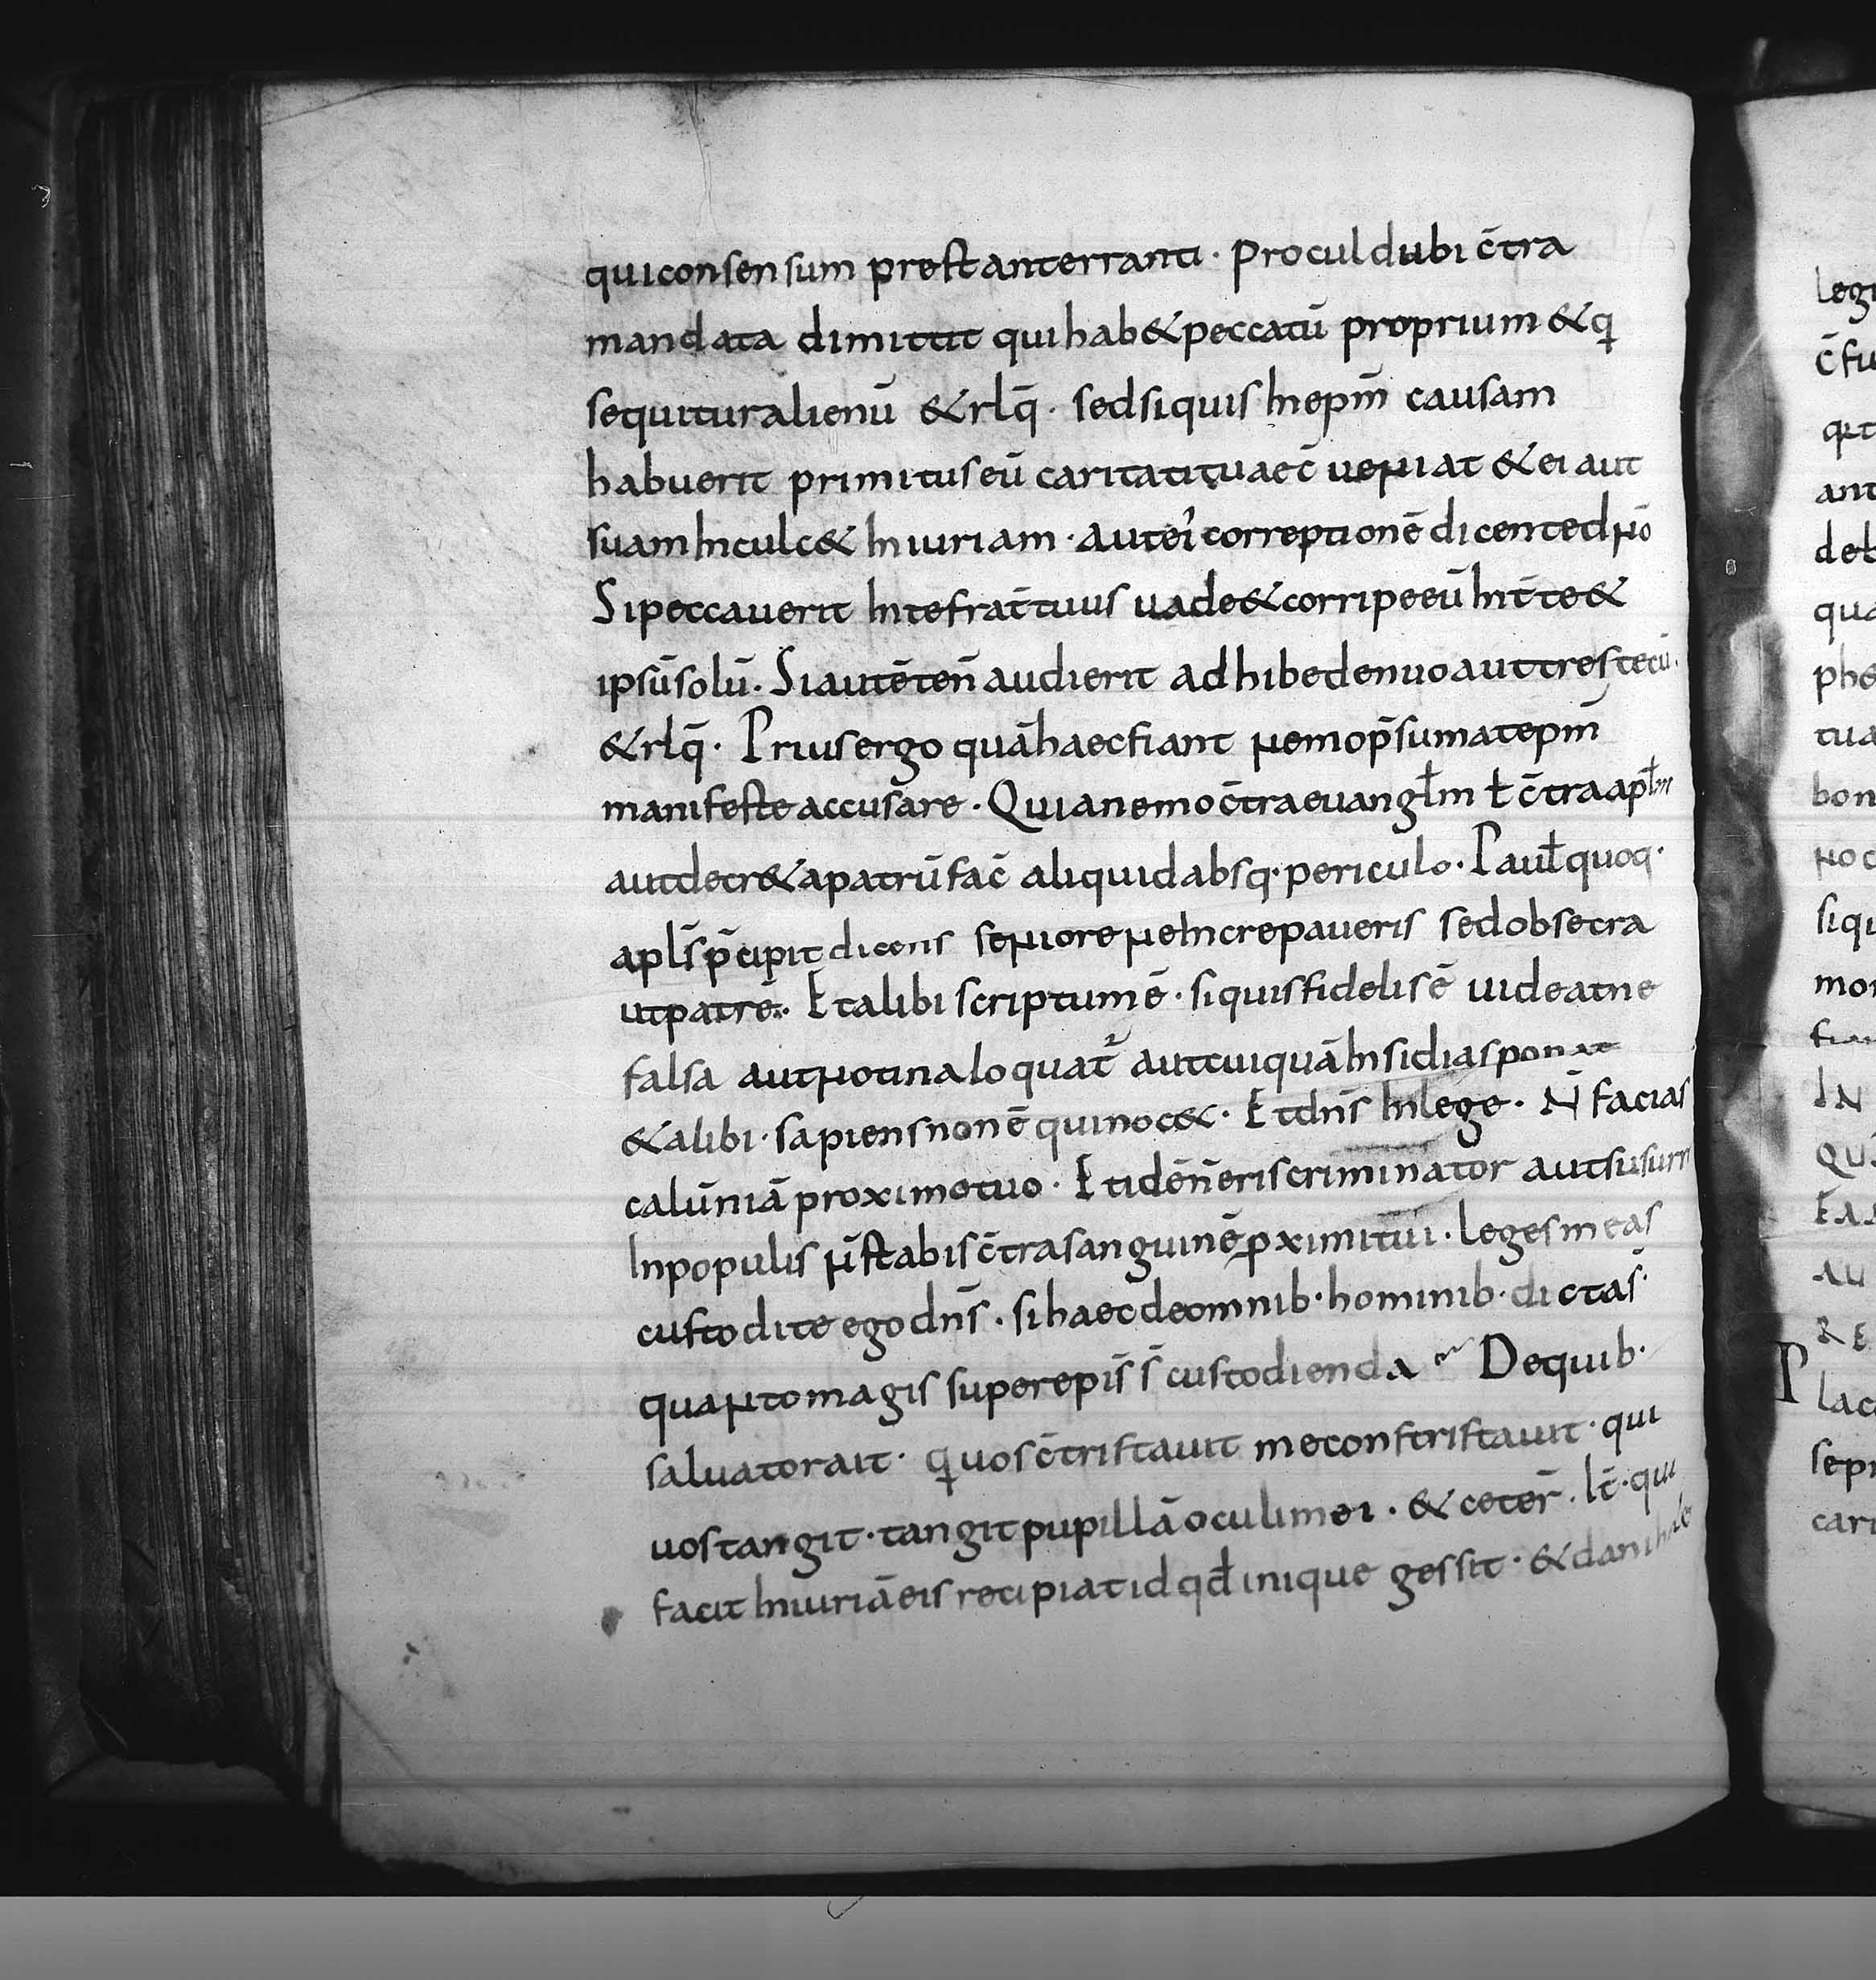 qui consensum prestant erranti · procul dubi c̄tra
mandata dimittit qui hab& peccatū proprium & q
sequitur alienū & rlq̄ · sed si quis in ep̄m causam
habuerit primitus eū caritati tuae c̄ueniat & ei aut
suam inculc& iniuriam · aut ei correptionē dicente dn̄o
Si peccauerit in te frat̄ tuus uade & corripe eū int̄ te &
ipsū solū. Si autē te n̄ audierit adhibe denuo aut tres tecū.
& rlq̄ · Prius ergo quā haec fiant nemo p̄sumat ep̄m
manifeste accusare · Quia nemo c̄tra euangłm ł c̄tra apłm
aut decr&a patrū fac̄ aliquid absq· periculo · Pauł quoq·
apłs p̄cipit dicens seniore ne increpaueris sed obsecra
ut patrē. Et alibi scriptum ē · si quis fidelis ē uideat ne
falsa aut notina loquat̄ aut cuiquā insidias ponat
& alibi · sapiens non ē qui noc& · Et dn̄s in lege · N̄ facias
calūniā proximo tuo · Et idē n̄ eris criminator aut susurr
In populis n̄ stabis c̄tra sanguinē pximi tūi · leges meas
custodite ego dn̄s · si haec de omnib· hominib· dictas̄·
quanto magis super epīs s̄ custodienda De quib·
saluator ait · q uos c̄tristauit me constristauit · qui
uos tangit · tangit pupillā oculi mei · & ceter̄ · It̄ · qui
facit iniuriā eis recipiat id qđ inique gessit · &
legi
c̄fu
ant
deb
qua
tua
bon
no c
siqu
mon
IN
QUI
AU
RE
Plac
sepi
cari